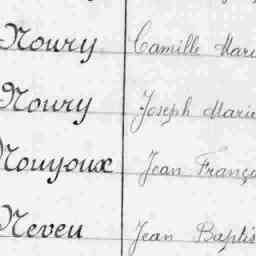 Noury Camille Mari
Noury Joseph Marie
Nouyoux Jean Franço
Neveu Jean Baptis